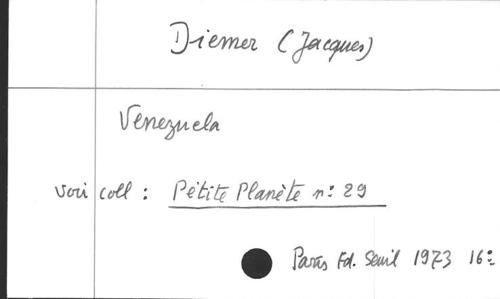 Diemer (Jacques)
Venezuela
voir coll : Pétite Planète n: 29
Paris Ed. Seuil 1973 16: